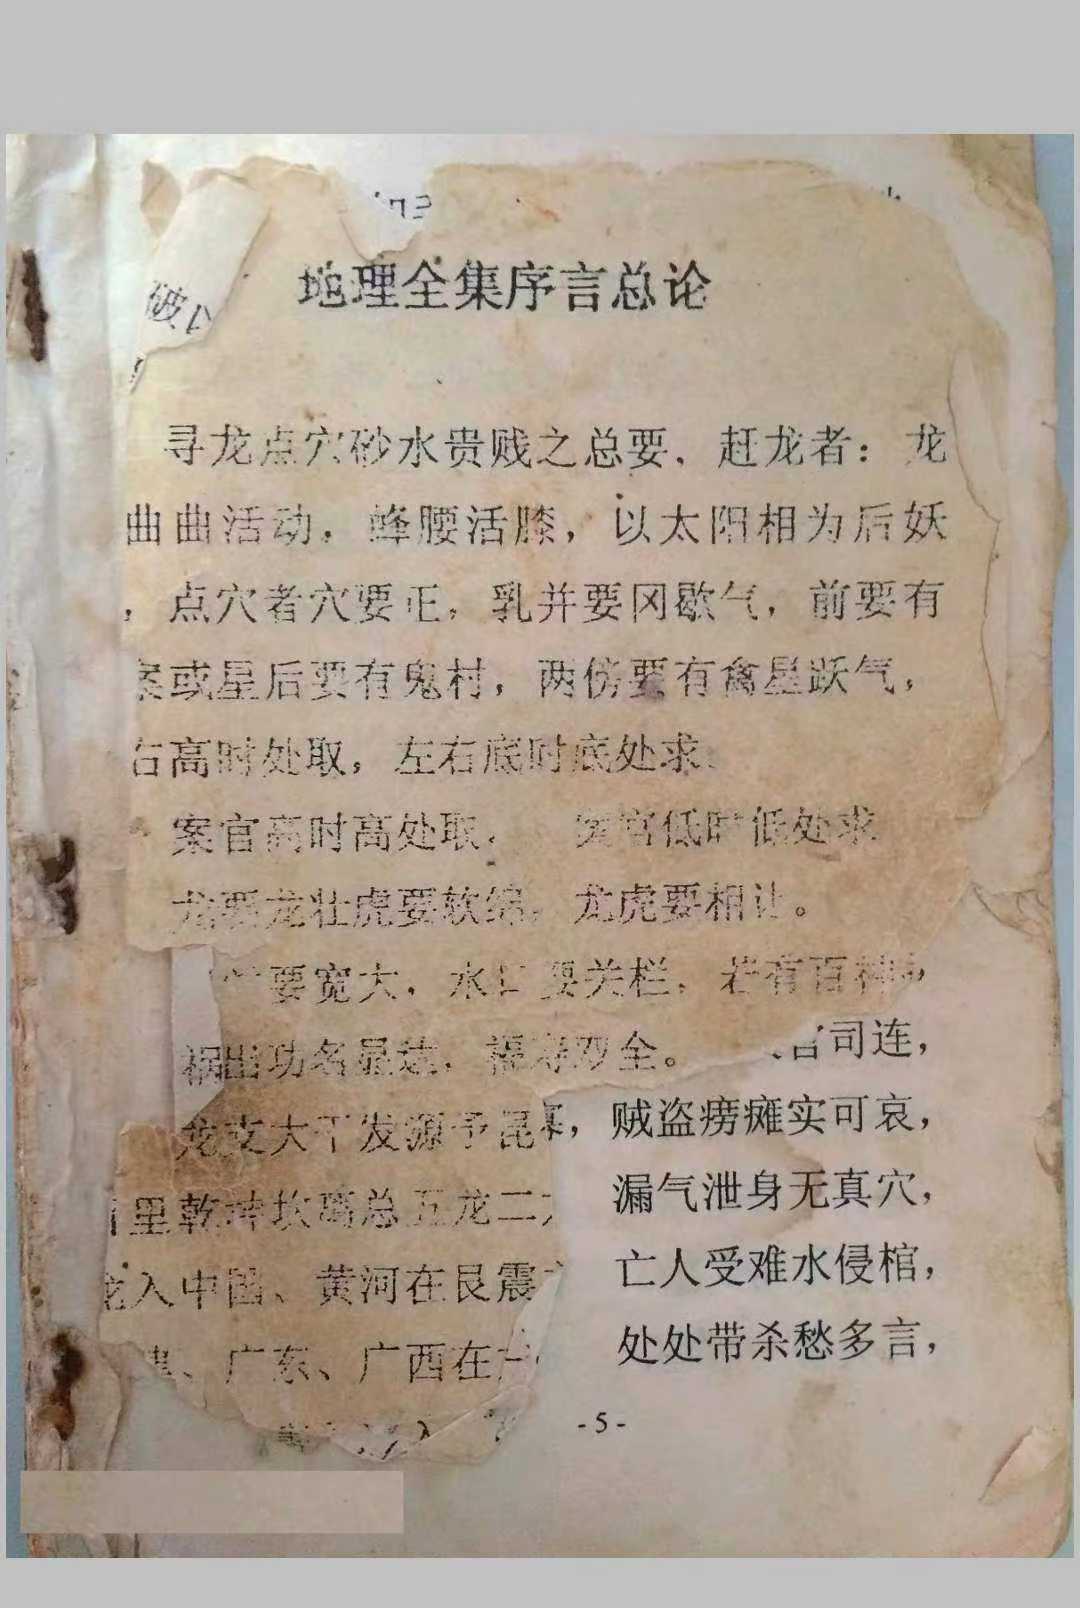 地理全集序言总论
破
寻龙点穴砂水贵贱之总要，赶龙者：龙
曲曲活动，蜂腰活膝，以太阳相为后妖
，点穴者穴要正，乳并要冈歇气，前要有
案或星后要有鬼村，两傍要有禽星跃气，
右高时处取，左右底时底处求
案官高时高处取，案官低时低处求
龙要龙壮虎要软绵，龙虎要相让。
要宽大，水口要关栏，若有百神
祠出功名显达，福寿双全。
官司连，
龙支大干发源于昆
，贼盗痨瘫实可哀，
里乾坤坎离总五龙二
漏气泄身无真穴，
龙入中国、黄河在艮震
亡人受难水侵棺，
、广东、广西在
处处带杀愁多言，
入
-5-